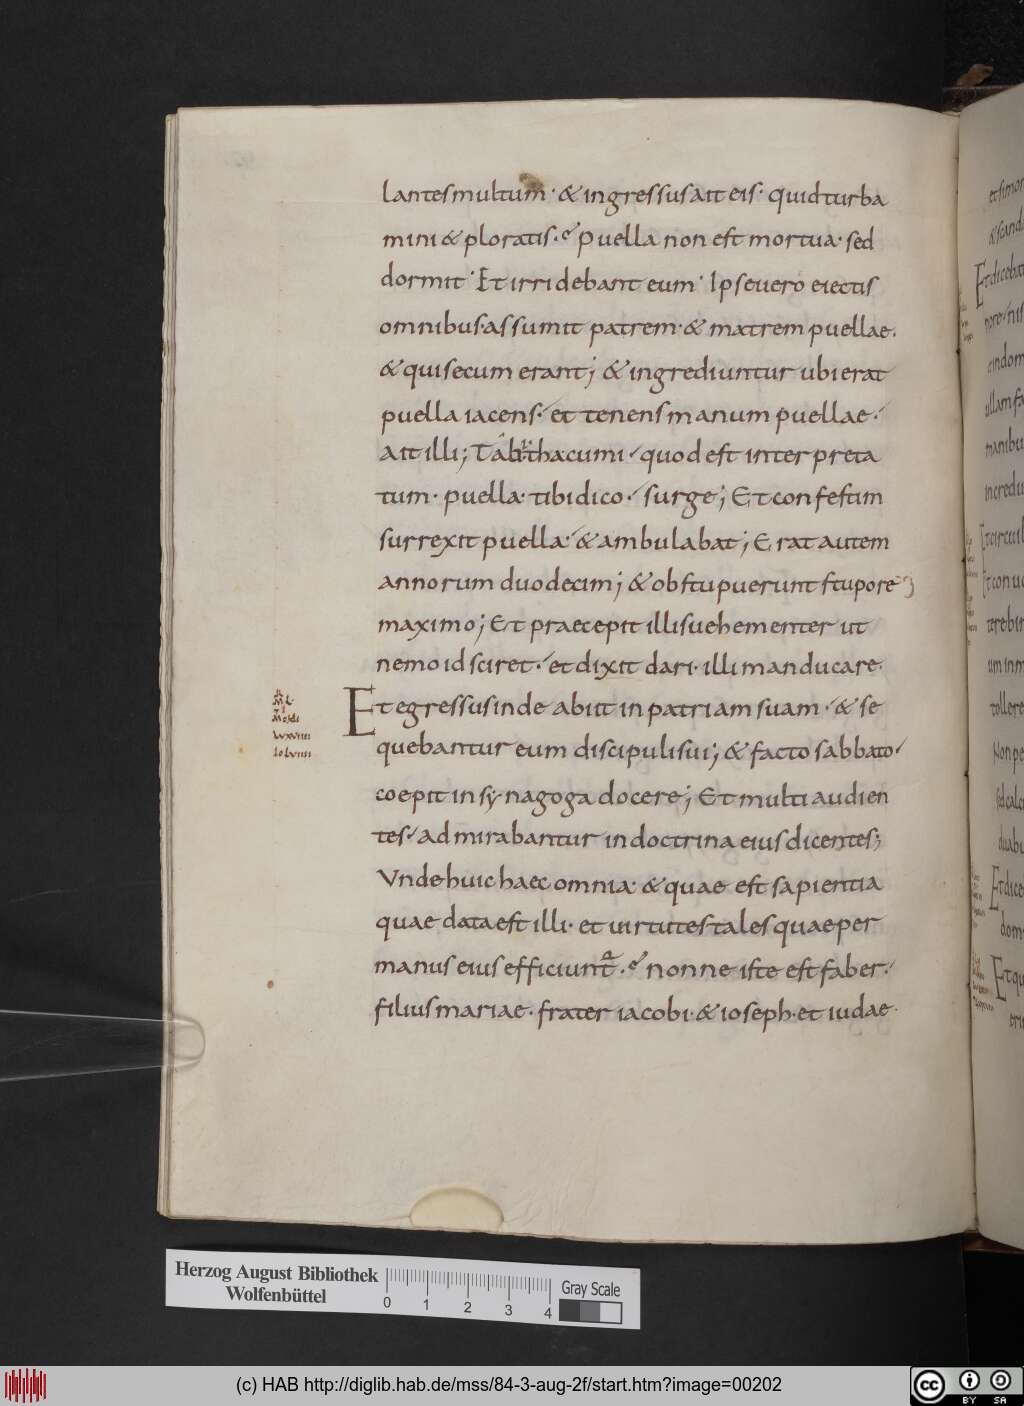 lantes multum· & ingressus ait eis· quid turba
mini & ploratis· Puella non est mortua· sed
dormit· Et irridebant eum· Ipse uero eiectis
omnibus· assumit patrem· & matrem puellae·
& qui secum erant; & ingrediuntur ubi erat
puella iacens· et tenens manum puellae·
ait illi; Tabitha cumi· quod est interpreta
tum· puella· tibi dico· surge; Et confestim
surrexit puella· & ambulabat; Erat autem
annorum duodecim; & obstupuerunt stupore
maximo; Et praecepit illis uehementer ut
nemo id sciret· et dixit dari· illi manducare·
Et egressus inde abiit in patriam suam· & se
quebantur eum discipuli sui; & facto sabbato·
coepit in synagoga docere; Et multi audien
tes· admirabantur in doctrina eius dicentes;
Vnde huic haec omnia· & quae est sapientia
quae data est illi· et uirtutes tales quae per
manus eius efficiunt· nonne iste est faber·
filius mariae· frater iacobi· & ioseph· et iudae·
Herzog August Bibliothek
Wolfenbüttel
0 1 2 3 4
Gray Scale
(c) HAB http://diglib.hab.de/mss/84-3-aug-2f/start.htm?image=00202
cc BY SA